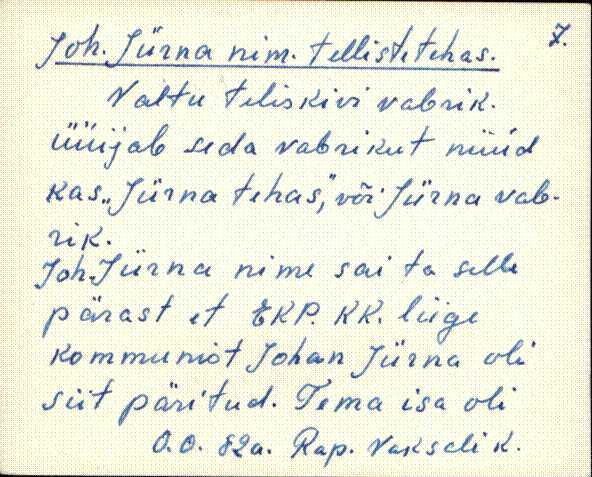 7.
Joh. Jürna nim. tellistetehas.
Valtu teliskivi vabrik.
üüijab seda vabrikut nüüd
kas „Jürna tehas," või Jürna vab-
rik.
Joh. Jürna nime sai ta selle
pärast et EKP. KK. liige
kommunist Johan Jürna oli
siit päritud. Tema isa oli
O.O. 82a. Rap. Vakselik.